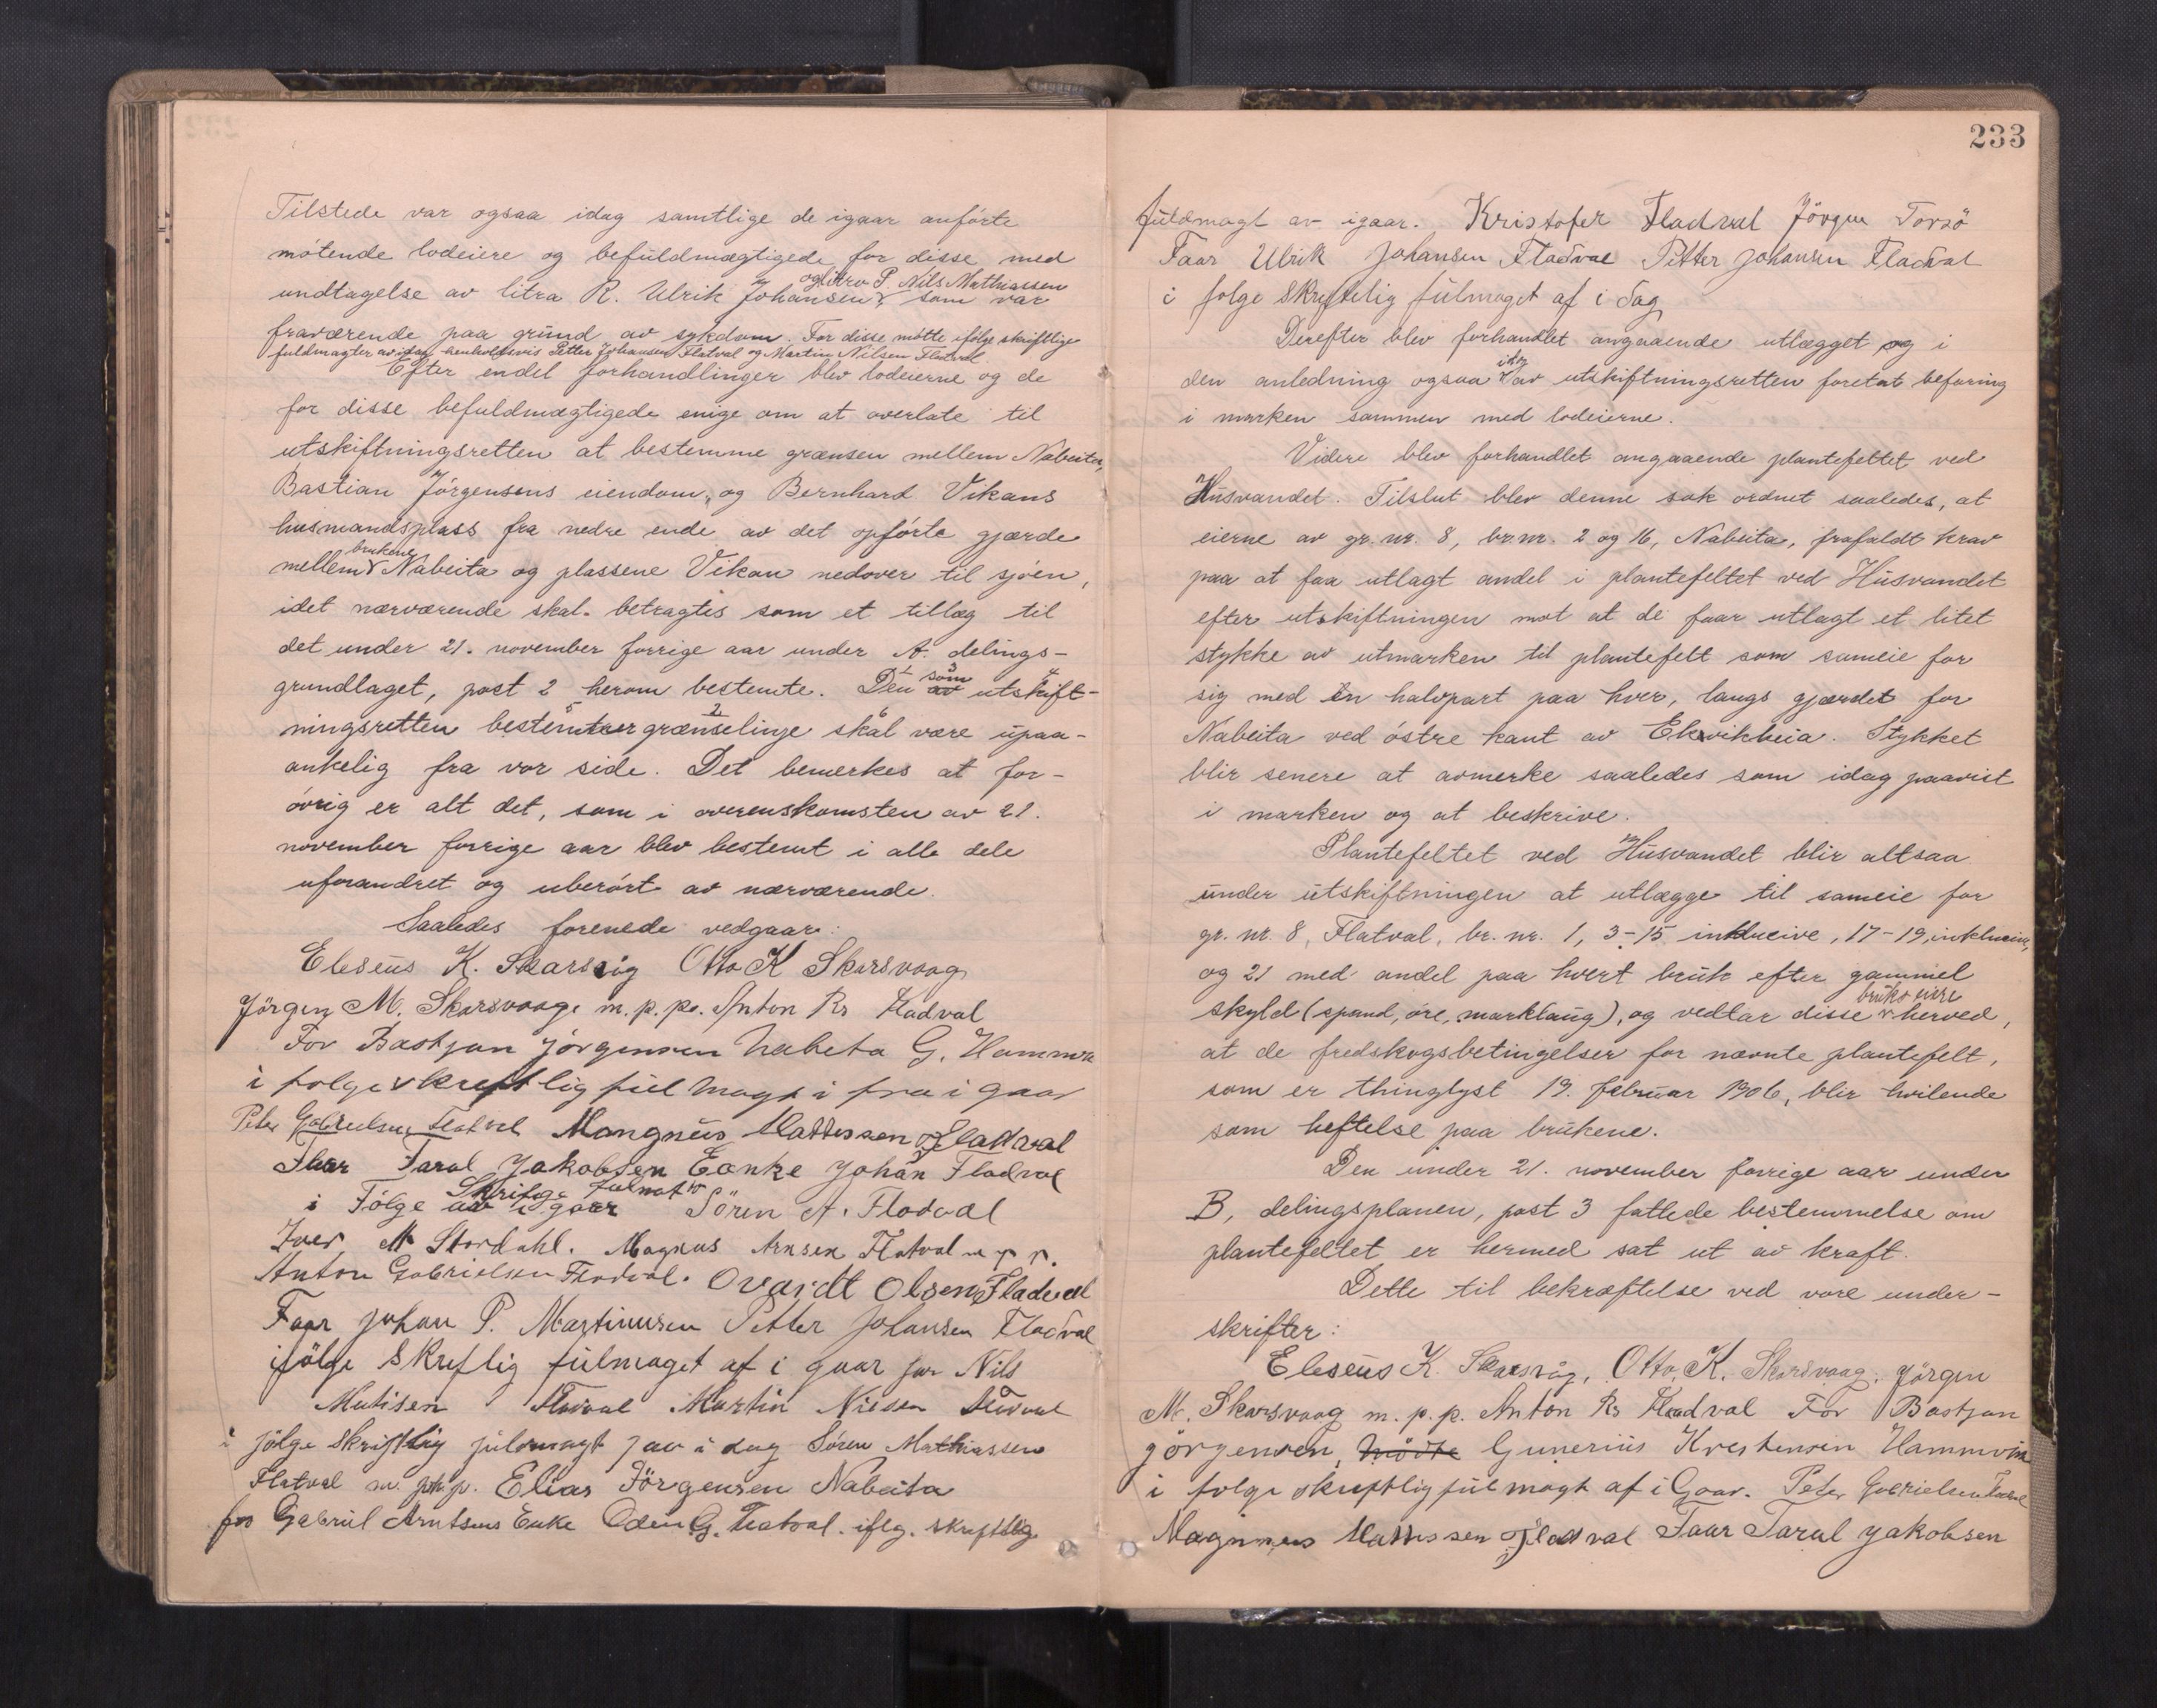 Tilstede var ogsaa idag samtlige de igaar anførte
møtende lodeiere og befuldmægtigede for disse med
og litra P. Nils Mathiassen
undtagelse av litra R. Ulrik Johansen som var
fraværende paa grund av sykdom. For disse møtte ifølge skriftlige
fuldmagter av idag henholdsvis Petter Johansen Flatval og Martin Nilsen Flatval.
Efter endel forhandlinger blev lodeierne og de
for disse befuldmægtigede enige om at overlate til
utskiftningsretten at bestemme grænsen mellem Nabeita,
Bastian Jørgensens eiendom, og Bernhard Vikans
husmandsplass fra nedre ende av det opførte gjærde
brukene
mellem Nabeita og plassene Vikan nedover til sjøen,
idet nærværende skal betragtes som et tillæg til
det under 21. november forrige aar under A. delings-
grundlaget, post 2 herom bestemte. Den som av utskift-
ningsretten bestemmer grænselinje skal være upaa-
ankelig fra vor side. Det bemerkes at for-
øvrig er alt det, som i overenskomsten av 21.
november forrige aar blev bestemt i alle dele
uforandret og uberørt av nærværende.
Saaledes forenede vedgaar:
Eleseus K. Skarsvåg Otto K Skarsvaag
Jørgen M. Skarsvaag m. p. p. Anton Rs Fladval
For Bastjan Jørgensen Nabeta G. Hammvik
i folge skreftlig fulmagt i fra i gaar
Peter Gabrielsen Flatval Mangnus Mattissen Fladval
Faar Taral Jakobsen Eanke Johan Fladval
Skriftlge fulmakt
i Følge av i gaar Sören A. Fladval
Iver M Stordahl. Magnus Arnsen Flatval m. p. p.
Anton Gabrielsen Fladval. Ovardt Olsen Fladval
Faar Johan P. Martinusen Petter Johansen Fladval
ifölge Skreflig fulmaget af i gaar for Nils
Matisen Fladval Martin Nilsen Fladval
i følge skriftlig fulmagt av i dag Søren Mathiassen
Flatval m. p. p. Elias Jörgensen Nabeita
for Gabriel Arntsens Enke Oden G. Flatval. iflg. skriftlig
233
fuldmagt av igaar. Kristofer Fladval Jörgen Torsö
Faar Ulrik Johansen Fladval Petter Johansen Fladval
i folge Skreftelig fulmaget af i Dag
Derefter blev forhandlet angaaende utlægget og i
idag
den anledning ogsaa av utskiftningsretten foretat befaring
i marken sammen med lodeierne.
Videre blev forhandlet angaaende plantefeltet ved
Husvandet. Tilslut blev denne sak ordnet saaledes, at
eierne av gr. nr. 8, br. nr. 2 og 16, Nabeita, frafaldt krav
paa at faa utlagt andel i plantefeltet ved Husvandet
efter utskiftningen mot at de faar utlagt et litet
stykke av utmarken til plantefelt som sameie for
sig med en halvpart paa hver, langs gjærdet for
Nabeita ved østre kant av Ekvikheia. Stykket
blir senere at avmerke saaledes som idag paavist
i marken og at beskrive.
Plantefeltet ved Husvandet blir altsaa
under utskiftningen at utlægge til sameie for
gr. nr. 8, Flatval, br. nr. 1, 3-15 inklusive, 17-19, inklusive,
og 21 med andel paa hvert bruk efter gammel
bruks eiere
skyld (spand, øre, marklaug), og vedtar disse herved,
at de fredskogsbetingelser for nævnte plantefelt,
som er thinglyst 19. februar 1906, blir hvilende
som heftelse paa brukene.
Den under 21. november forrige aar under
B, delingsplanen, post 3 fattede bestemmelse om
plantefeltet er hermed sat ut av kraft.
Dette til bekræftelse ved vore under-
skrifter:
Eleseus K. Skarsvåg, Otto. K. Skarsvaag. Jörgen
M. Skarsvaag m. p. p. Anton Rs Fladval For Bastjan
Jörgensen, mødte Gunerius Krestensen Hammvik
i folge skreftlig fulmagt af i Gaar. Peter Gabrielsen Flatval
Magnus Mattissen Fladval Faar Taral Jakobsen